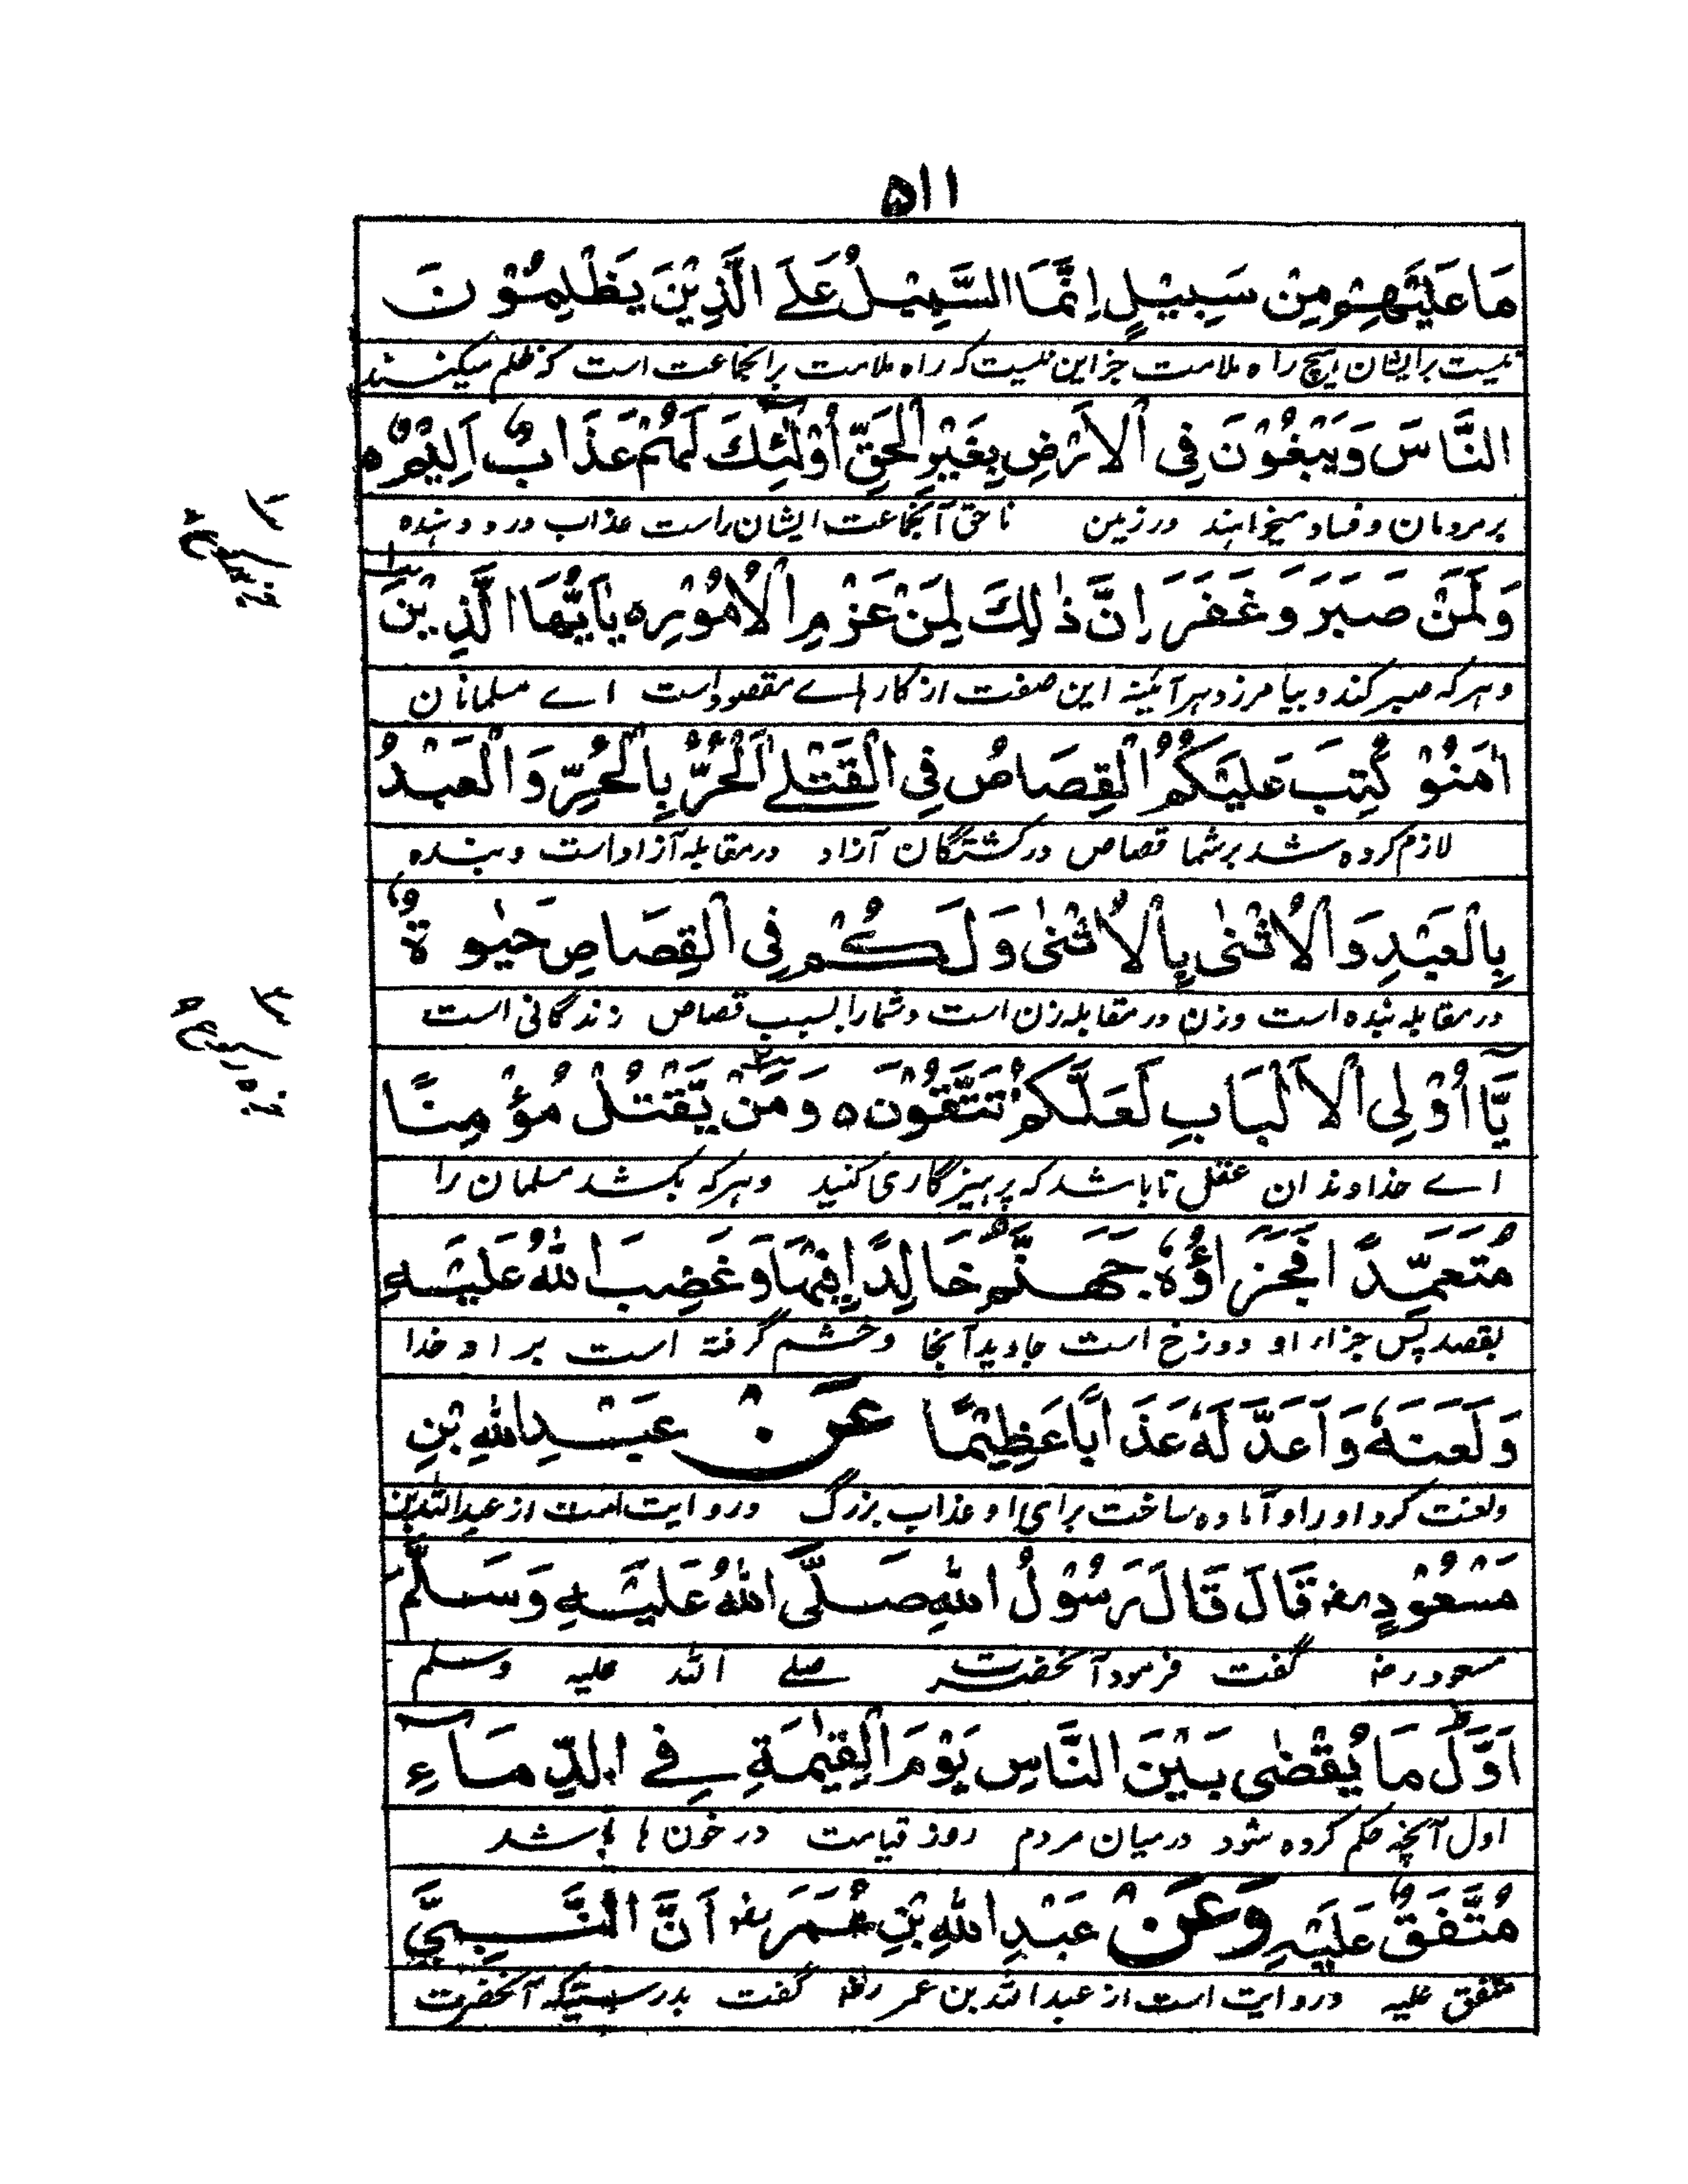 ۵۱۱
مَا عَلَيْهِمْ مِنْ سَبِيْلٍ اِنَّمَا السَّبِيْلُ عَلَے الَّذِيْنَ يَظْلِمُوْنَ
نیست بر ایشان هیچ راه ملامت جز این نیست که راه ملامت بر آنجماعت است که ظلم میکنند
النَّاسَ وَيَبْغُوْنَ فِى الْاَرْضِ بِغَيْرِ الْحَقِّ اُوْلٰٓئِكَ لَهُمْ عَذَابٌ اَلِيْمٌ ه
بر مردمان و فساد میخواهند در زمین ناحق آنجماعت ایشان راست عذاب درد دهنده
وَلَمَنْ صَبَرَ وَغَفَرَ اِنَّ ذٰلِكَ لَمِنْ عَزْمِ الْاُمُوْرِ ه يٰاَيُّهَا الَّذِيْنَ
و هر که صبر کند و بیامرزد هر آئینه این صفت از کارهاے مقصود است اے مسلمانان
اٰمَنُوْ كُتِبَ عَلَيْكُمُ الْقِصَاصُ فِى الْقَتْلٰے اَلْحُرُّ بِالْحُرِّ وَالْعَبْدُ
لازم کرده شد بر شما قصاص در کشتگان آزاد در مقابله آزاد است و بنده
بِالْعَبْدِ وَالْاُنْثٰى بِالْاُنْثٰى وَلَكُمْ فِى الْقِصَاصِ حَيٰوةٌ
در مقابله بنده است و زن در مقابله زن است و شما را بسبب قصاص زندگانی است
يَّا اُوْلِى الْاَلْبَابِ لَعَلَّكُمْ تَتَّقُوْنَ ه وَمَنْ يَّقْتُلْ مُؤْمِنًا
اے خداوندان عقل تا باشد که پرهیزگاری کنید و هر که بکشد مسلمان را
مُتَعَمِّدًا فَجَزَاؤُهٗ جَهَنَّمُ خَالِدًا فِيْهَا وَغَضِبَ اللّٰهُ عَلَيْهِ
بقصد پس جزاء او دوزخ است جاوید آنجا و خشم گرفته است بر او خدا
وَلَعَنَهٗ وَاَعَدَّ لَهٗ عَذَابًا عَظِيْمًا عَنْ عَبْدِ اللّٰهِ بْنِ
و لعنت کرد او را و آماده ساخت برای او عذاب بزرگ و روایت است از عبد اللہ بن
مَسْعُوْدٍ رض قَالَ قَالَ رَسُوْلُ اللّٰهِ صَلَّى اللّٰهُ عَلَيْهِ وَسَلَّمَ
مسعود رض گفت فرمود آنحضرت صلے اللہ علیہ وسلم
اَوَّلُ مَا يُقْضٰى بَيْنَ النَّاسِ يَوْمَ الْقِيٰمَةِ فِے الدِّمَآءِ
اول آنچه حکم کرده شود درمیان مردم روز قیامت در خون ها باشد
مُتَّفَقٌ عَلَيْهِ وَعَنْ عَبْدِ اللّٰهِ بْنِ عُمَرَ رض اَنَّ النَّبِىَّ
متفق علیه و روایت است از عبد اللہ بن عمر رض گفت بدرستیکه آنحضرت